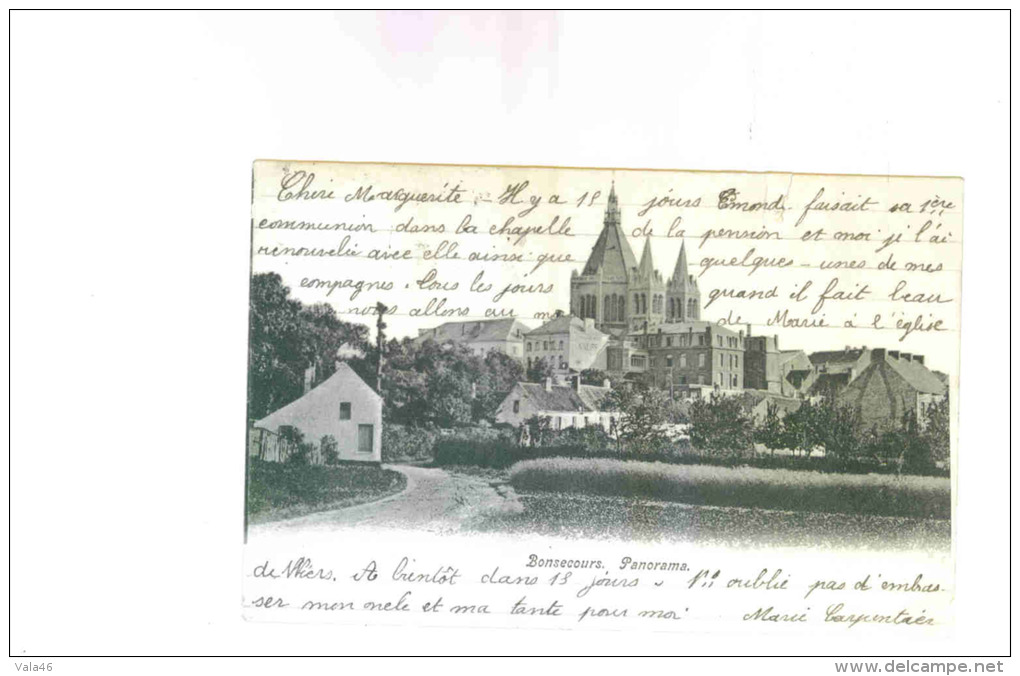 Chère Marguerite - Il y a 15 jours Emond faisait sa 1ère
communion dans la chapelle de la pension et moi je l'ai
renouvelée avec elle ainsi que quelques-unes de mes
compagnes. Tous les jours quand il fait beau
nous allons au de Marie à l'église
Bonsecours. Panorama.
de A bientôt dans 15 jours oublié pas d'embras-
ser mon oncle et ma tante pour moi Marie Carpentier
Vala46
www.delcampe.net